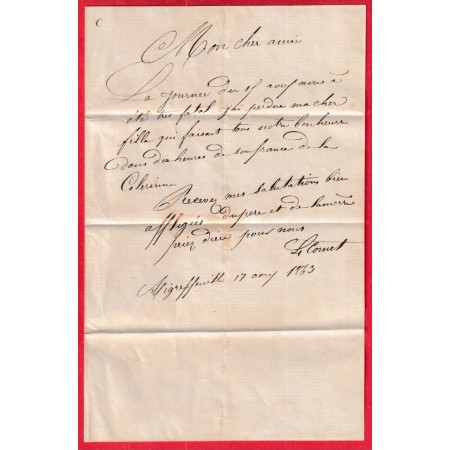 C
Mon cher ami
La journée du 15 aout nous a
été très fatal j'ai perdue ma cher
fille qui faisait tous notre bonheure
dans dix heures de soufrance de la
Colerinne
Recevez mes salutations bien
affligées du pere et de la mère
priez dieu pour nous
Cornet
Aigrefeuille 17 aout 1863